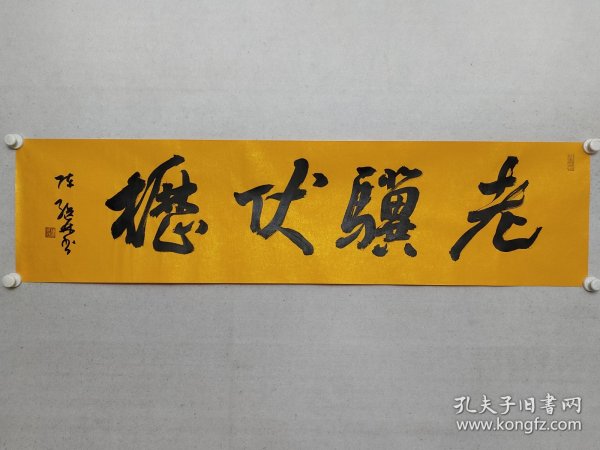 老驥伏櫪
孔夫子旧書网
www.kongfz.com